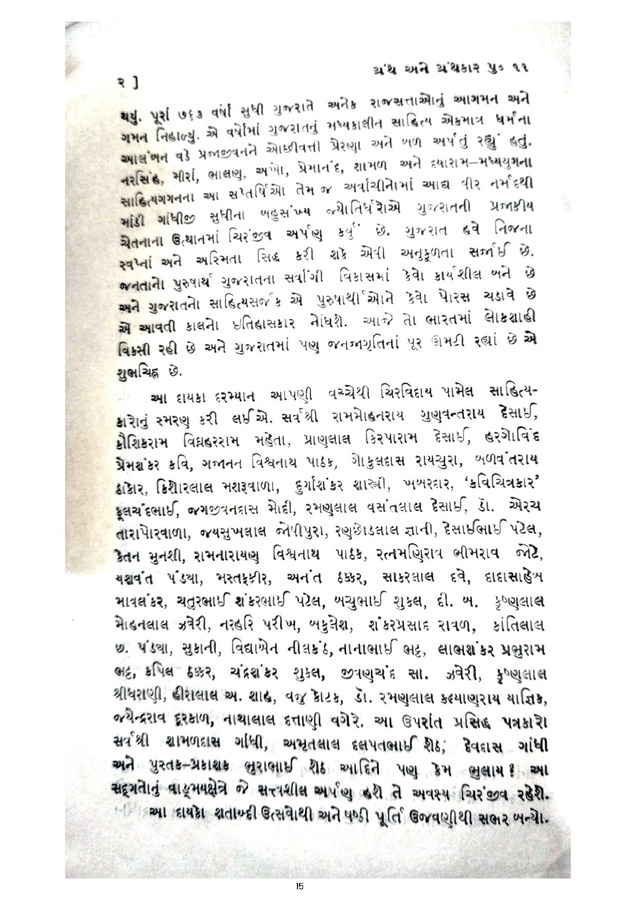 ગ્રંથ અને ગ્રંથકાર પુ૦ ૧૧
૨ ]
થયું. પૂરાં ૭૬૩ વર્ષો સુધી ગુજરાતે અનેક રાજસત્તાઓનું આગમન અને
ગમન નિહાળ્યું. એ વર્ષોમાં ગુજરાતનું મધ્યકાલીન સાહિત્ય એકમાત્ર ધર્મના
આલંબન વડે પ્રજાજીવનને ઓછીવત્તી પ્રેરણા અને બળ અર્પતું રહ્યું હતું.
નરસિંહ, મીરાં, ભાલણ, અખો, પ્રેમાનંદ, શામળ અને દયારામ–મધ્યયુગના
સાહિત્યગગનના આ સપ્તર્ષિઓ તેમ જ અર્વાચીનોમાં આદ્ય વીર નર્મદથી
માંડી ગાંધીજી સુધીના બહુસંખ્ય જ્યોતિર્ધરોએ ગુજરાતની પ્રજાકીય
ચેતનાના ઉત્થાનમાં ચિરંજીવ અર્પણ કર્યું છે. ગુજરાત હવે નિજના
સ્વપ્નાં અને અસ્મિતા સિદ્ધ કરી શકે એવી અનુકૂળતા સર્જાઈ છે.
જનતાનો પુરુષાર્થ ગુજરાતના સર્વાંગી વિકાસમાં કેવો કાર્યશીલ બને છે
અને ગુજરાતનો સાહિત્યસર્જક એ પુરુષાર્થીઓને કેવો પોરસ ચડાવે છે
એ આવતી કાલનો ઇતિહાસકાર નોંધશે. આજે તો ભારતમાં લોકશાહી
વિકસી રહી છે અને ગુજરાતમાં પણ જનજાગૃતિનાં પૂર ઊમટી રહ્યાં છે એ
શુભચિહ્ન છે.
આ દાયકા દરમ્યાન આપણી વચ્ચેથી ચિરવિદાય પામેલ સાહિત્ય-
કારોનું સ્મરણ કરી લઈએ. સર્વશ્રી રામમોહનરાય ગુણવન્તરાય દેસાઈ,
કૌશિકરામ વિઘ્નહરરામ મહેતા, પ્રાણલાલ કિરપારામ દેસાઈ, હરગોવિંદ
પ્રેમશંકર કવિ, ગજાનન વિશ્વનાથ પાઠક, ગોકુલદાસ રાયચુરા, બળવંતરાય
ઠાકોર, કિશોરલાલ મશરૂવાળા, દુર્ગાશંકર શાસ્ત્રી, ખબરદાર, ‘કવિચિત્રકાર’
ફૂલચંદભાઈ, જગજીવનદાસ મોદી, રમણલાલ વસંતલાલ દેસાઈ, ડૉ. એરચ
તારાપોરવાળા, જયસુખલાલ જોષીપુરા, રણછોડલાલ જ્ઞાની, દેસાઈભાઈ પટેલ,
કેતન મુનશી, રામનારાયણ વિશ્વનાથ પાઠક, રત્નમણિરાવ ભીમરાવ જોટે,
યશવંત પંડ્યા, મસ્તફકીર, અનંત ઠક્કર, સાકરલાલ દવે, દાદાસાહેબ
માવલંકર, ચતુરભાઈ શંકરભાઈ પટેલ, બચુભાઈ શુક્લ, દી. બ. કૃષ્ણલાલ
મોહનલાલ ઝવેરી, નરહરિ પરીખ, બકુલેશ, શંકરપ્રસાદ રાવળ, કાંતિલાલ
છ. પંડ્યા, સુકાની, વિદ્યાબેન નીલકંઠ, નાનાભાઈ ભટ્ટ, લાભશંકર પ્રભુરામ
ભટ્ટ, કપિલ ઠક્કર, ચંદ્રશંકર શુક્લ, જીવણચંદ સા. ઝવેરી, કૃષ્ણલાલ
શ્રીધરાણી, હીરાલાલ અ. શાહ, વજુ કોટક, ડૉ. રમણલાલ કહ્યાણરાય યાજ્ઞિક,
જયેન્દ્રરાવ દૂરકાળ, નાથાલાલ દત્તાણી વગેરે. આ ઉપરાંત પ્રસિદ્ધ પત્રકારો
સર્વશ્રી શામળદાસ ગાંધી, અમૃતલાલ દલપતભાઈ શેઠ, દેવદાસ ગાંધી
અને પુસ્તક–પ્રકાશક ભુરાભાઈ શેઠ આદિને પણ કેમ ભુલાય? આ
સદ્ગતોનું વાઙ્મયક્ષેત્રે જે સત્ત્વશીલ અર્પણ હશે તે અવશ્ય ચિરંજીવ રહેશે.
આ દાયકો શતાબ્દી ઉત્સવોથી અને ષષ્ઠી પૂર્તિ ઉજવણીથી સભર બન્યો.
15